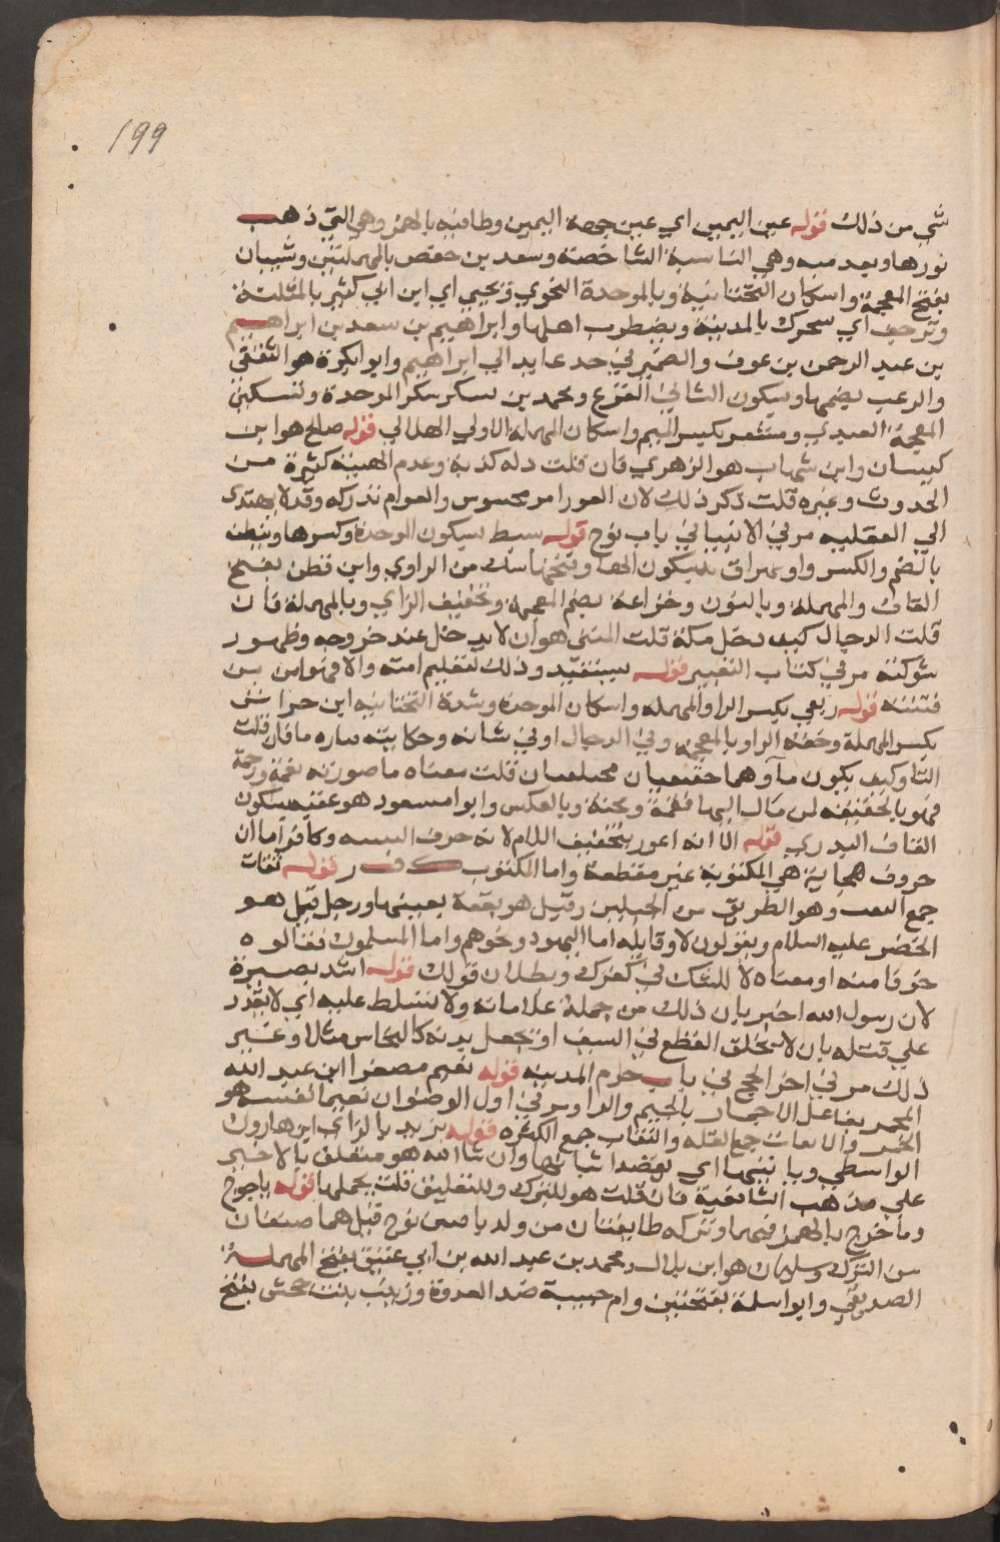 199
شي من ذلك قوله عين اليمين اي عين جهة اليمين وطافيه بالهمز وهي التي ذهب
نورها وبعدمه وهي الناسبة الشاخصة وسعد بن حفص بالمهملتين وشيبان
بفتح المعجمة واسكان التحتانية وبالموحدة النحوي ويحيي اي ابن ابي كثير بالمثلثة
وترجف اي تتحرك بالمدينة ويضطرب اهلها وابراهيم بن سعد بن ابراهيم
بن عبد الرحمن بن عوف والضمير في جد عايد الي ابراهيم وابو ابكرة هو الثقفي
والرعب بضمها وسكون الثاني الفزع ومحمد بن بشر بكسر الموحدة وتسكين
المعجمة العبدي ومسعر بكسر الميم واسكان المهملة الاولي الهلالي قوله صالح هو ابن
كيسان وابن شهاب هو الزهري فان قلت دلة كذبه وعدم الهيته كثيرة من
الحدوث وغيره قلت ذكر ذلك لان العور امر محسوس والعوام تدركه وقد لا يهتدى
الي العقليه مر في الانبيا في باب نوح قوله سبط بسكون الموحدة وكسرها وينطف
بالضم والكسر او يهراق بسكون الها وفتحها شك من الراوي وابن قطن بفتح
القاف والمهملة وبالنون وخزاعة بضم المعجمة وتخفيف الزاي وبالمهملة فان
قلت الدجال كيف دخل مكة قلت المنفي هو ان لا يدخل عند خروجه وظهور
شوكته مر في كتاب التعبير قوله يستعيذ وذلك لتعليم امته والا فهو امن من
فتنته قوله ربعي بكسر الرا والمهملة واسكان الموحدة وشدة التحتانيه ابن حراش
بكسر المهملة وخفة الرا وبالمعجمة وفي الدجال اي في شانه وحكايته ناره ما فان قلت
النار كيف يكون ماء وهما حقيقتان مختلفتان قلت معناه ما صورته نعمة ورحمة
فهو بالحقيقة لمن مال اليها نقمة ومحنة وبالعكس وابو مسعود هو عقبة بسكون
القاف البدري قوله الا انه اعور بتخفيف اللام لانه حرف التنبيه وكافر اما ان
حروف هجائية هي المكتوبة غير مقطعة واما المكتوب ك ف ر قوله نقاب
جمع النقب وهو الطريق بين الجبلين وقيل هو بقعة بعينها ورجل قيل هو
الخضر عليه السلام ويقولون لا وقايله اما اليهود ونحوهم واما المسلمون فقالوه
خوفا منه او معناه لا للشك في كفرك وبطلان قولك قوله اشد بصيرة
لان رسول الله اخبر بان ذلك من جملة علاماته ولا تسلط عليه اي لا يقدر
علي قتله بان لا يخلق القطع في السيف او يجعل بدنه كالنحاس مثلا وغير
ذلك مر في اخر الحج في باب حرم المدينه قوله نعيم مصغرا ابن عبد الله
المجمر بفاعل الاجمار بالجيم والرا ومر في اول الوضوء ان نعيما نفسه هو
المجمر والانقاب جمع القلة والنقاب جمع الكثره قوله يزيد بالزاي ابن هارون
الواسطي وياتيها اي يقصد اتيانها وان شا الله هو متعلق بالاخير
علي مذهب الشافعية فان قلت هو للتبرك وللتعليق قلت يحملها قوله ياجوج
وماجوج بالهمز فيهما وتركه طايفتان من ولد يافث بن نوح قيل هما صنفان
من الترك وسليمان هو ابن بلال ومحمد بن عبد الله بن ابي عتيق بفتح المهملة
الصديقي وابو اسلمة بفتحتين وام حبيبة ضد العدوة وزينب بنت جحش بفتح